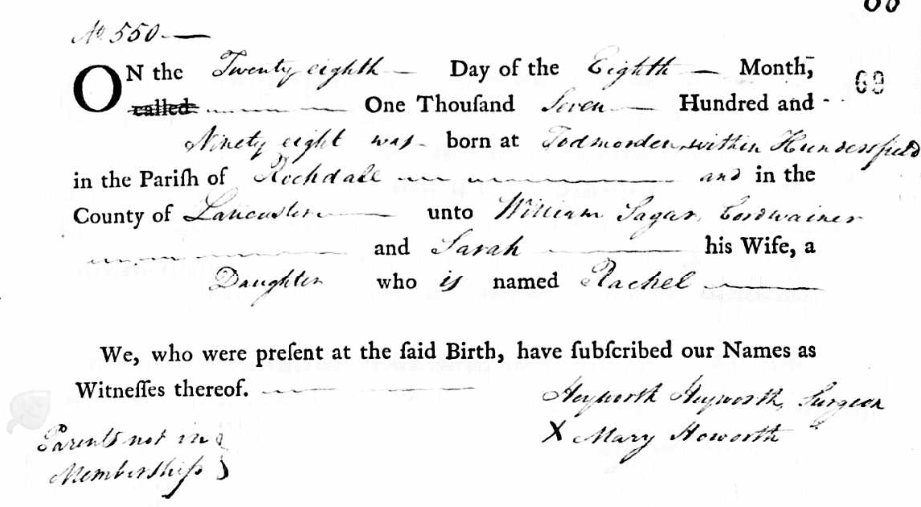 No. 550
ON the Twenty eighth Day of the Eighth Month,
called One Thouſand Seven Hundred and 69
Ninety eight was born at Todmorden within Hundersfield
in the Pariſh of Rochdale and in the
County of Lancaster unto William Sagar, Cordwainer
and Sarah his Wife, a
Daughter who is named Rachel
We, who were preſent at the ſaid Birth, have ſubſcribed our Names as
Witneſſes thereof.
Heyworth Heyworth, Surgeon
X Mary Howorth
Parents not in
Memberſhip